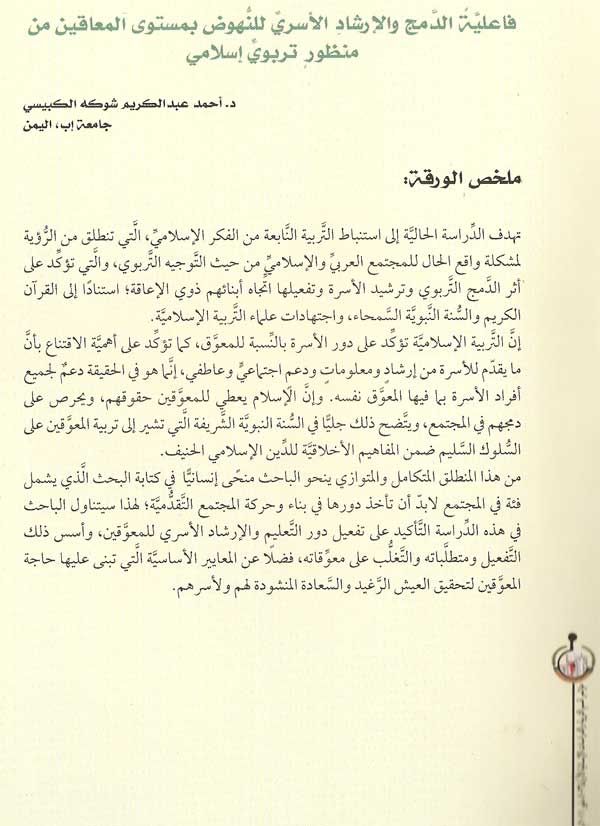 فاعليَّةُ الدَّمج والإرشادِ الأسريِّ للنُّهوض بمستوى المعاقين من
منظورٍ تربويٍّ إسلامي
د. أحمد عبدالكريم شوكه الكبيسي
جامعة إب، اليمن
ملخص الورقة:
تهدف الدِّراسة الحاليَّة إلى استنباط التَّربية النَّابعة من الفكر الإسلاميِّ، الَّتي تنطلق من الرُّؤية
لمشكلة واقع الحال للمجتمع العربيِّ والإسلاميِّ من حيث التَّوجيه التَّربوي، والَّتي تؤكِّد على
أثر الدَّمج التَّربوي وترشيد الأسرة وتفعيلها اتِّجاه أبنائهم ذوي الإعاقة؛ استنادًا إلى القرآن
الكريم والسُّنة النَّبويَّة السَّمحاء، واجتهادات علماء التَّربية الإسلاميَّة.
إنَّ التَّربية الإسلاميَّة تؤكِّد على دور الأسرة بالنِّسبة للمعوَّق، كما تؤكِّد على أهميَّة الاقتناع بأنَّ
ما يقدّم للأسرة من إرشادٍ ومعلوماتٍ ودعم اجتماعيٍّ وعاطفي، إنَّما هو في الحقيقة دعمٌ لجميع
أفراد الأسرة بما فيها المعوَّق نفسه. وإنَّ الإسلام يعطي للمعوَّقين حقوقهم، ويحرص على
دمجهم في المجتمع، ويتَّضح ذلك جليًّا في السُّنة النبويَّة الشَّريفة الَّتي تشير إلى تربية المعوَّقين على
السُّلوك السَّليم ضمن المفاهيم الأخلاقيَّة للدِّين الإسلامي الحنيف.
من هذا المنطلق المتكامل والمتوازي ينحو الباحث منحًى إنسانيًّا في كتابة البحث الَّذي يشمل
فئة في المجتمع لابدَّ أن تأخذ دورها في بناء وحركة المجتمع التَّقدُّميَّة؛ لهذا سيتناول الباحث
في هذه الدِّراسة التَّأكيد على تفعيل دور التَّعليم والإرشاد الأسري للمعوَّقين، وأسس ذلك
التَّفعيل ومتطلَّباته والتَّغلُّب على معوِّقاته، فضلًا عن المعايير الأساسيَّة الَّتي تبنى عليها حاجة
المعوَّقين لتحقيق العيش الرَّغيد والسَّعادة المنشودة لهم ولأسرهم.